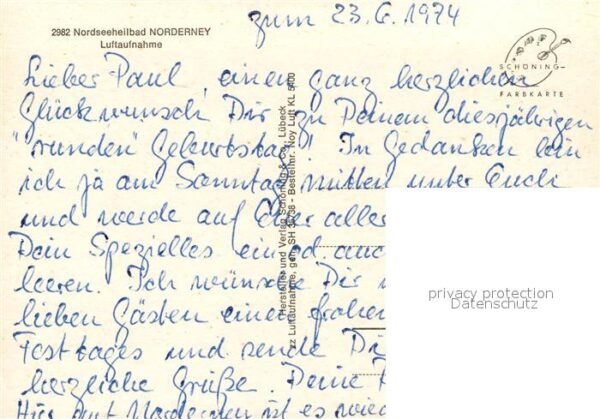 zum 23.6.1974
2982 Nordseeheilbad NORDERNEY
Luftaufnahme
SCHÖNING-
FARBKARTE
Lieber Paul, einen ganz herzlichen
Glückwunsch Dir zu Deinem diesjährigen
"runden" Geburtstag! In Gedanken bin
ich ja am Sonntag mitten unter Euch
und werde auf Euer aller
Dein Spezielles ein od. auch
leeren. Ich wünsche Dir
lieben Gästen einen frohen
Festtages und sende Dir
herzliche Grüße. Deine
Hier auf Norderney ist es wied
Hersteller und Verlag Schöning & Co., Lübeck
Luftaufnahme, gen. SH Bestellnr. Noy Luft KL 5400
privacy protection
Datenschutz